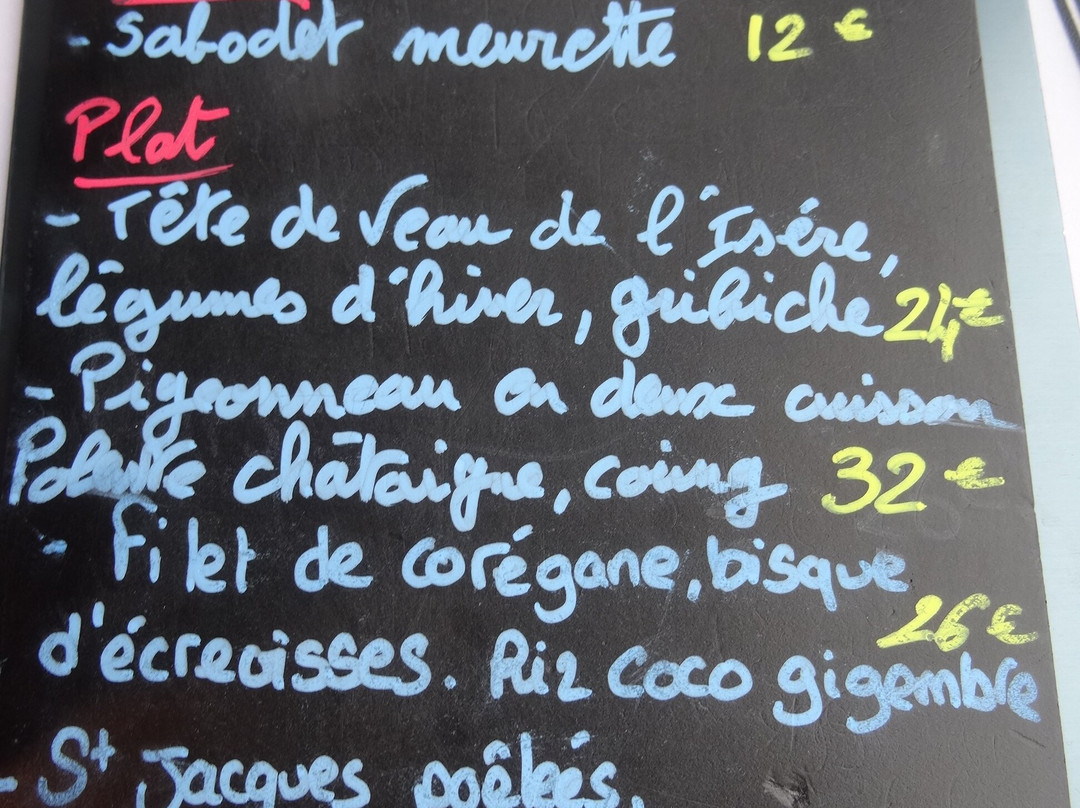 - Sabodet meurette 12 €
Plat
- Tête de Veau de l'Isére,
légumes d'hiver, gribiche 24€
- Pigeonneau en deux cuisson
Polente châtaigne, coing 32 €
- Filet de corégane, bisque
26€
d'écrevisses. Riz coco gigembre
- St Jacques poêlés,